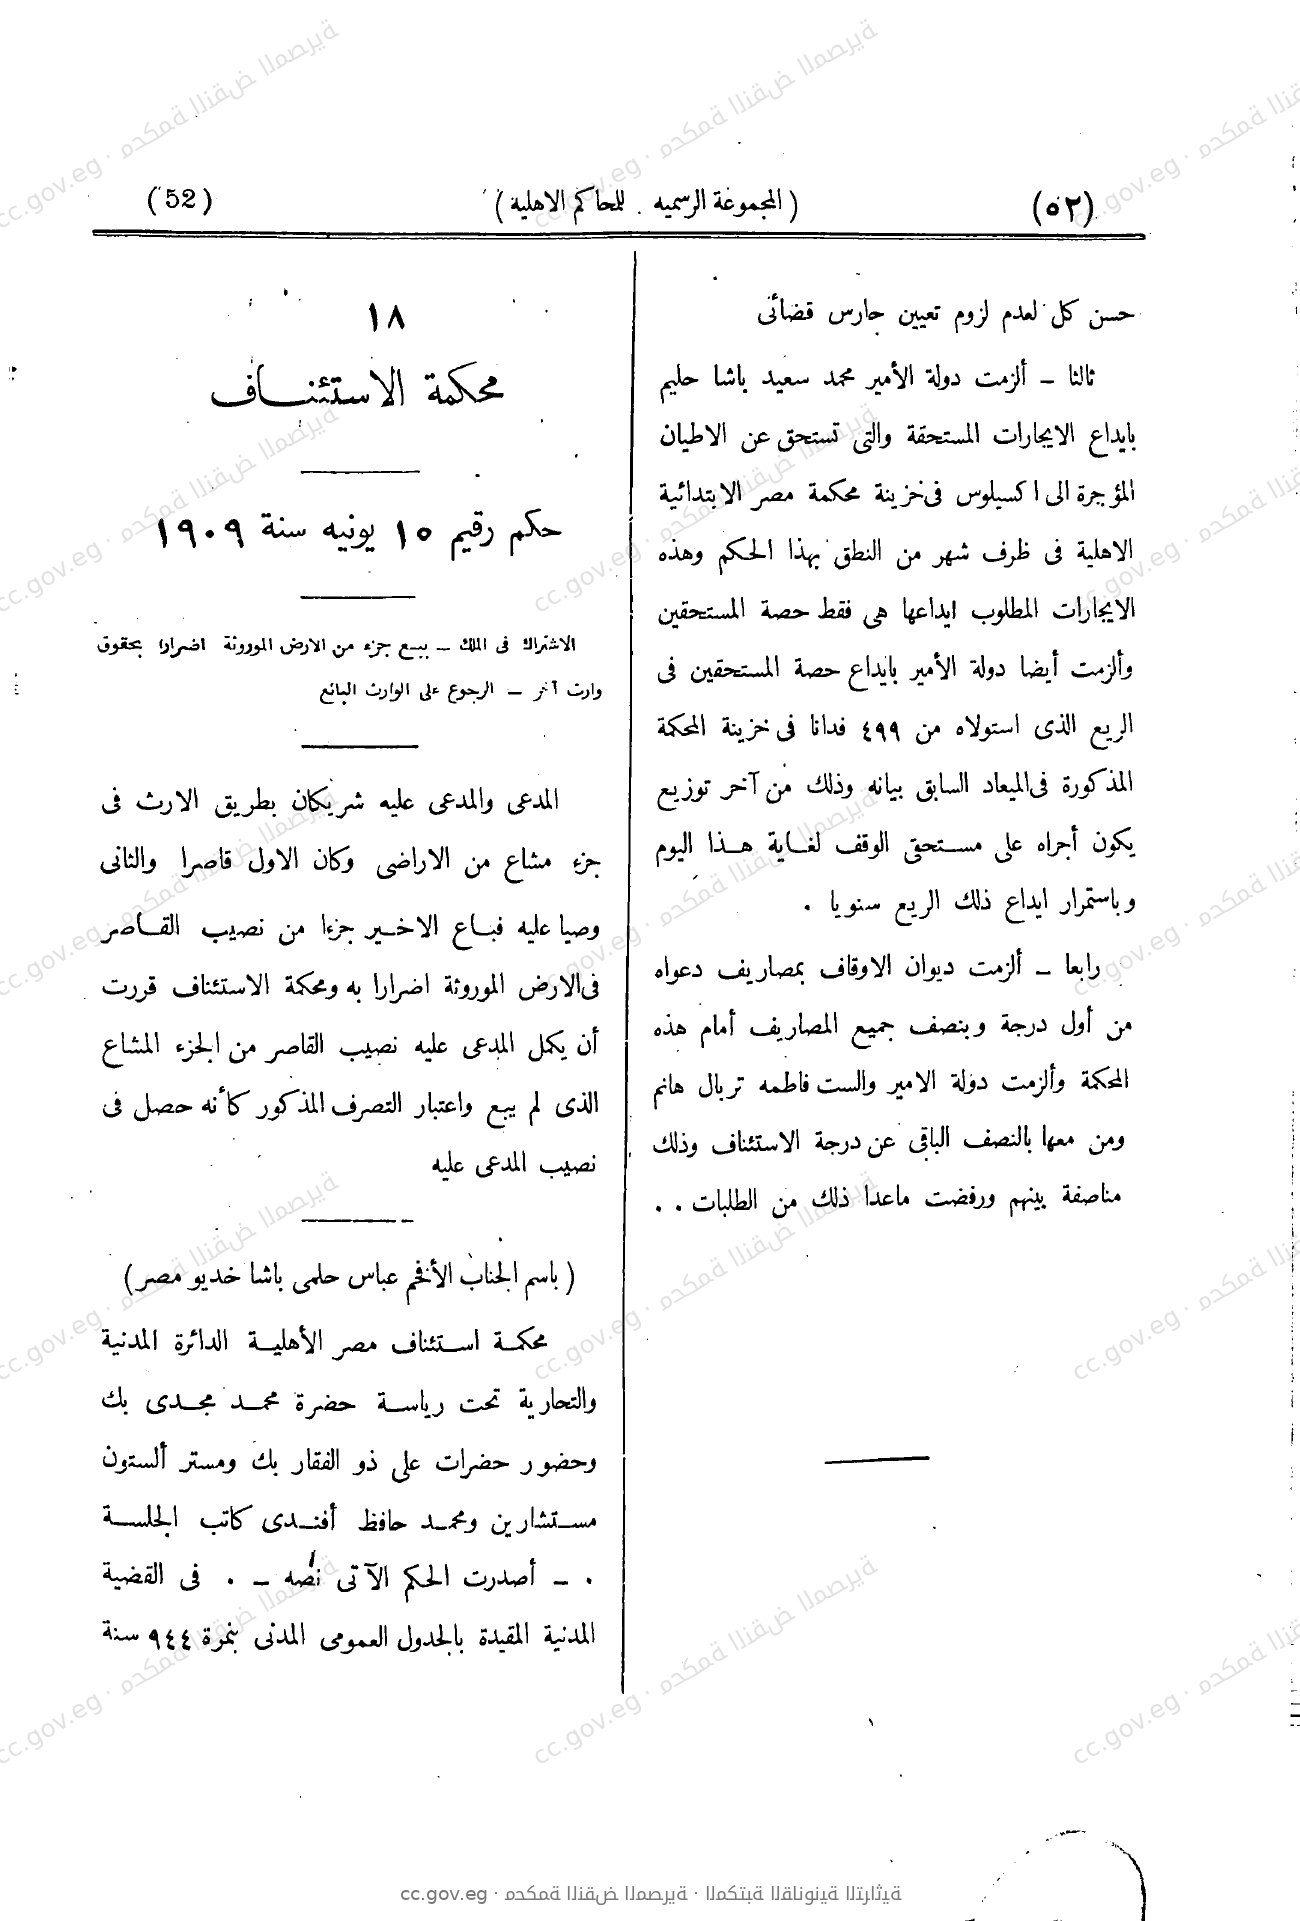 (٥٢)
( المجموعة الرسميه . للحاكم الاهلية )
(52)
حسن كل لعدم لزوم تعيين حارس قضائى
ثالثا – ألزمت دولة الأمير محمد سعيد باشا حليم
بايداع الايجارات المستحقة والتى تستحق عن الاطيان
المؤجرة الى اكسيلوس فى خزينة محكمة مصر الابتدائية
الاهلية فى ظرف شهر من النطق بهذا الحكم وهذه
الايجارات المطلوب ايداعها هى فقط حصة المستحقين
وألزمت أيضا دولة الأمير بايداع حصة المستحقين فى
الريع الذى استولاه من ٤٩٩ فدانا فى خزينة المحكمة
المذكورة فى الميعاد السابق بيانه وذلك من آخر توزيع
يكون أجراه على مستحقى الوقف لغاية هذا اليوم
وباستمرار ايداع ذلك الريع سنويا .
رابعا – ألزمت ديوان الاوقاف بمصاريف دعواه
من أول درجة وبنصف جميع المصاريف أمام هذه
المحكمة وألزمت دولة الامير والست فاطمه تربال هانم
ومن معها بالنصف الباقى عن درجة الاستئناف وذلك
مناصفة بينهم ورفضت ماعدا ذلك من الطلبات . .
١٨
محكمة الاستئناف
حكم رقيم ١٥ يونيه سنة ١٩٠٩
الاشتراك فى الملك – ببيع جزء من الارض الموروثة اضرارا بحقوق
وارث آخر – الرجوع على الوارث البائع
المدعى والمدعى عليه شريكان بطريق الارث فى
جزء مشاع من الاراضى وكان الاول قاصرا والثانى
وصيا عليه فباع الاخير جزءا من نصيب القاصر
فى الارض الموروثة اضرارا به ومحكمة الاستئناف قررت
أن يكمل المدعى عليه نصيب القاصر من الجزء المشاع
الذى لم يبع واعتبار التصرف المذكور كأنه حصل فى
نصيب المدعى عليه
( باسم الجناب الأفخم عباس حلمى باشا خديو مصر )
محكمة استئناف مصر الأهلية الدائرة المدنية
والتحارية تحت رياسة حضرة محمد مجدى بك
وحضور حضرات على ذو الفقار بك ومستر ألستون
مستشارين ومحمد حافظ أفندى كاتب الجلسة
. – أصدرت الحكم الآتى نصه – . فى القضية
المدنية المقيدة بالجدول العمومى المدنى بنمرة ٩٤٤ سنة
cc.gov.eg · محكمة النقض المصرية · المكتبة القانونية التراثية